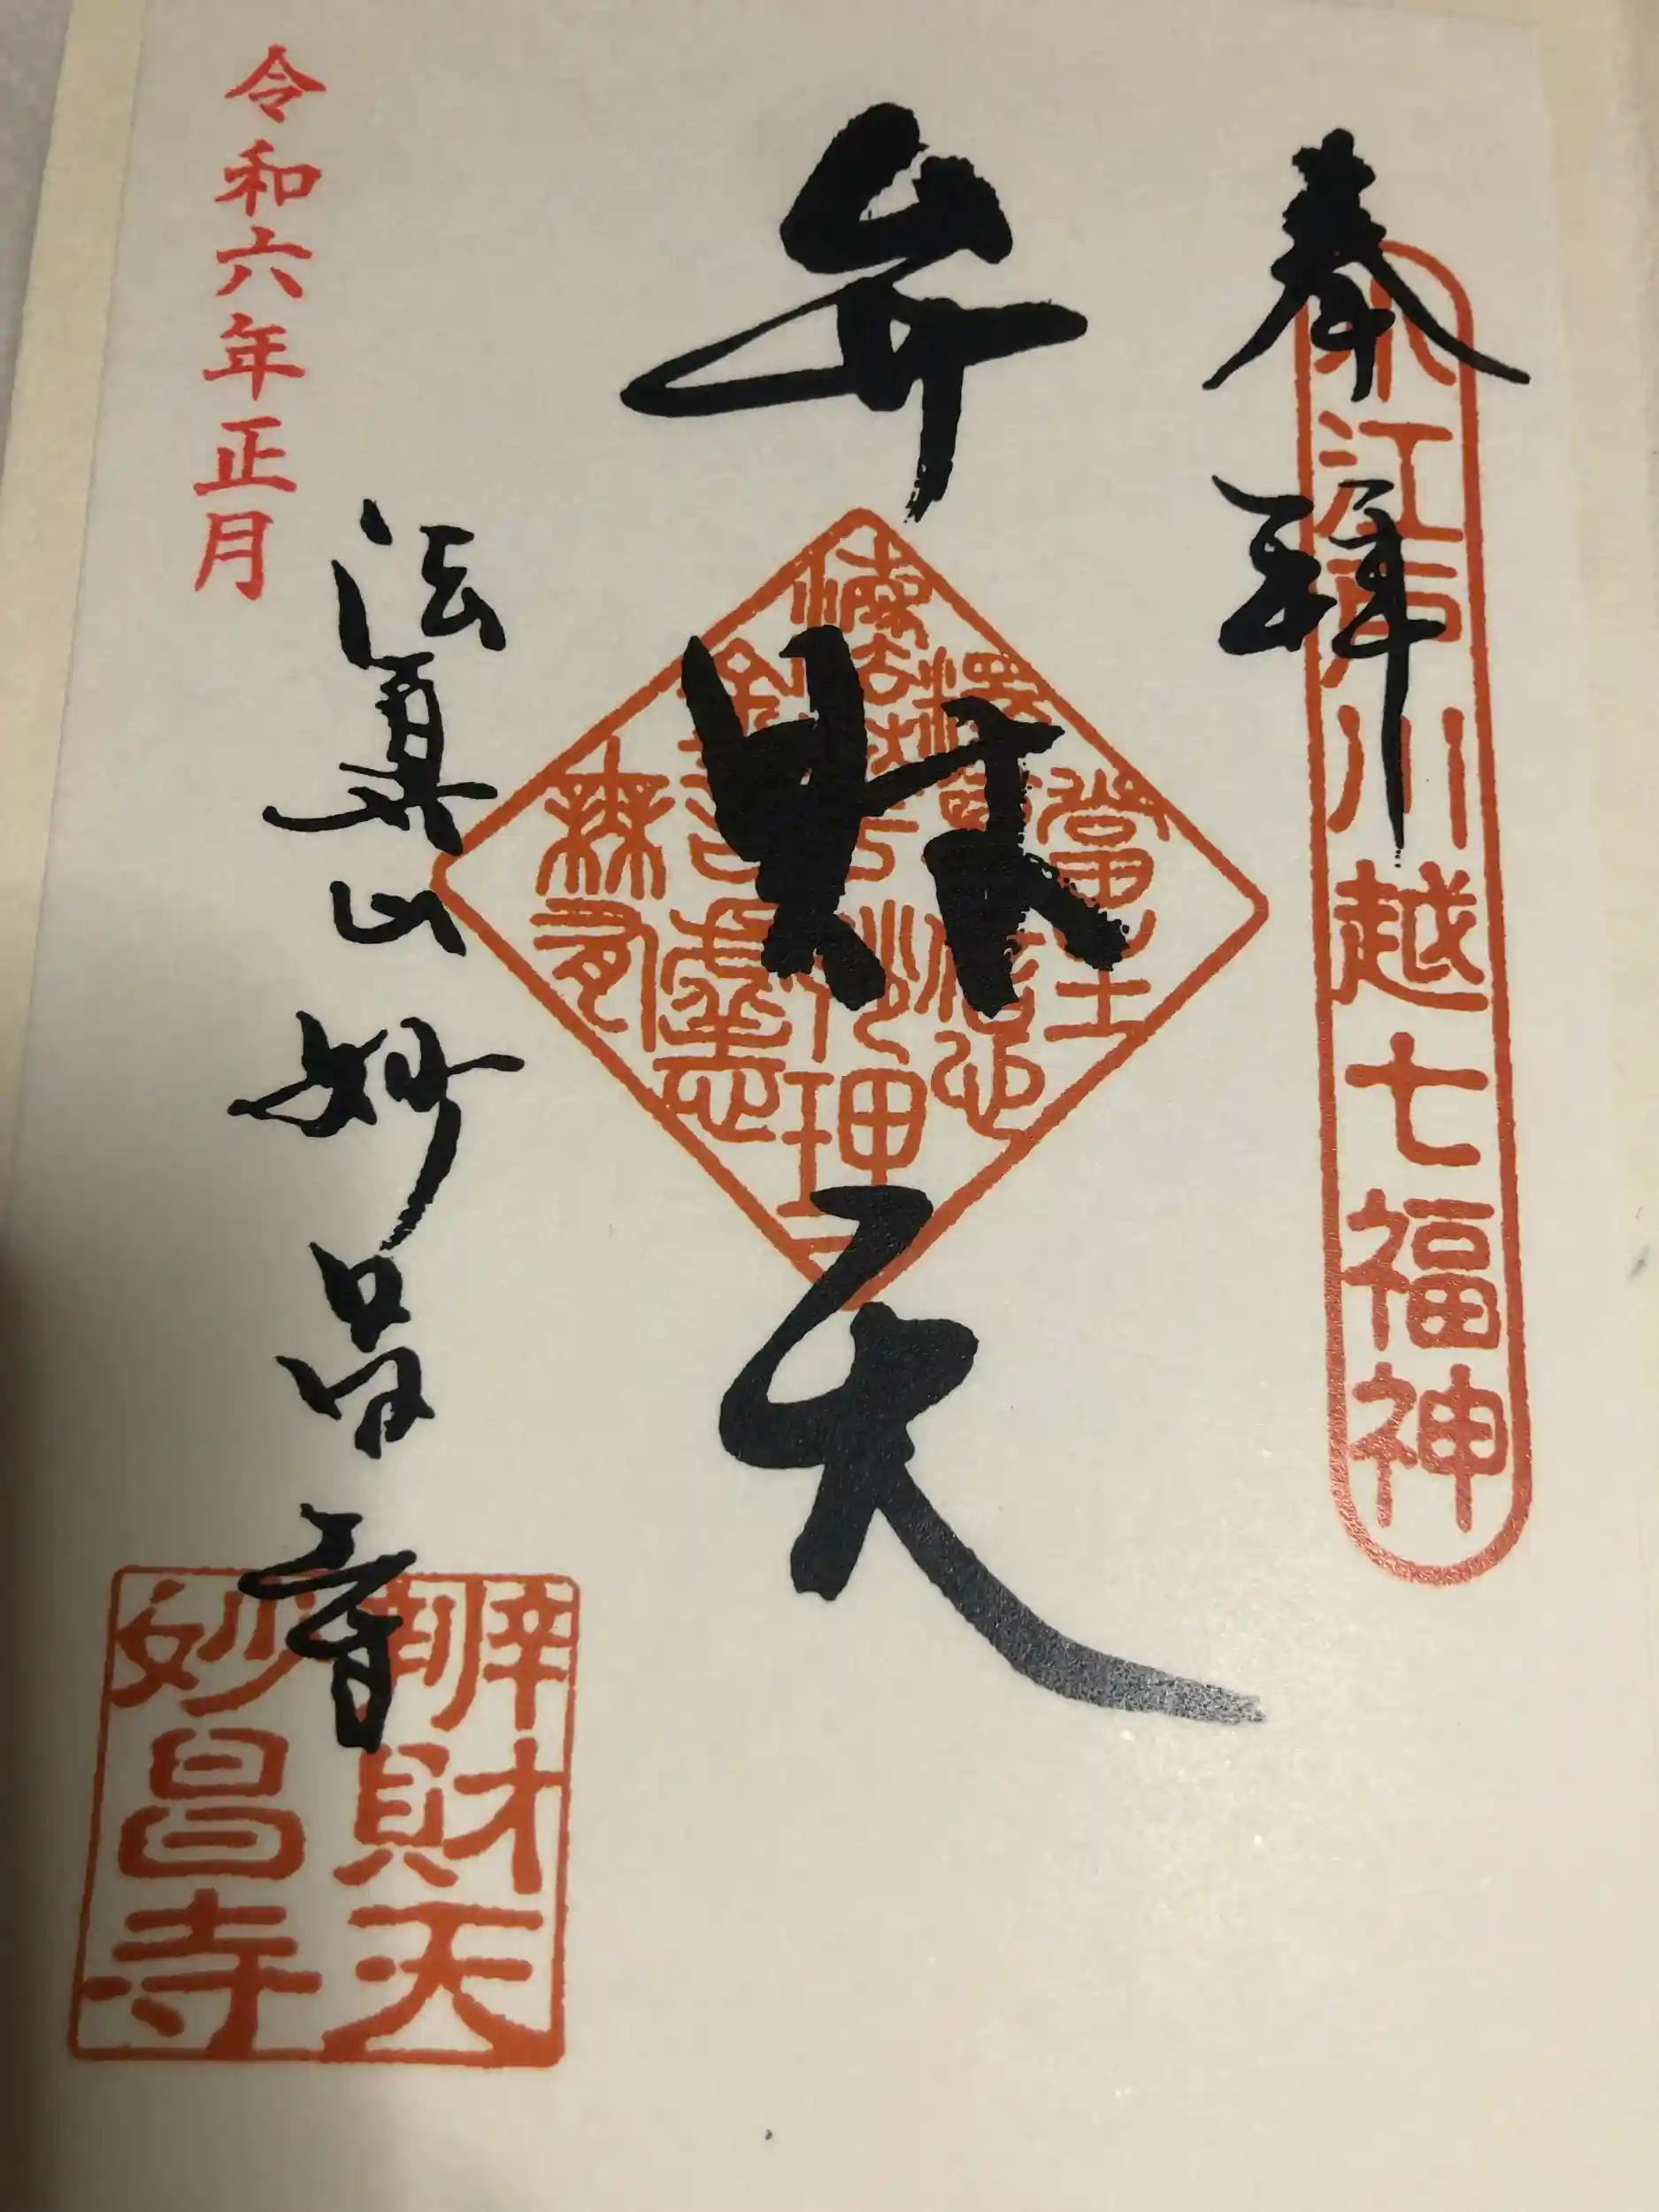 奉拝
小江戸川越七福神
弁財天
法眞山妙昌寺
令和六年正月
辨財天
妙昌寺